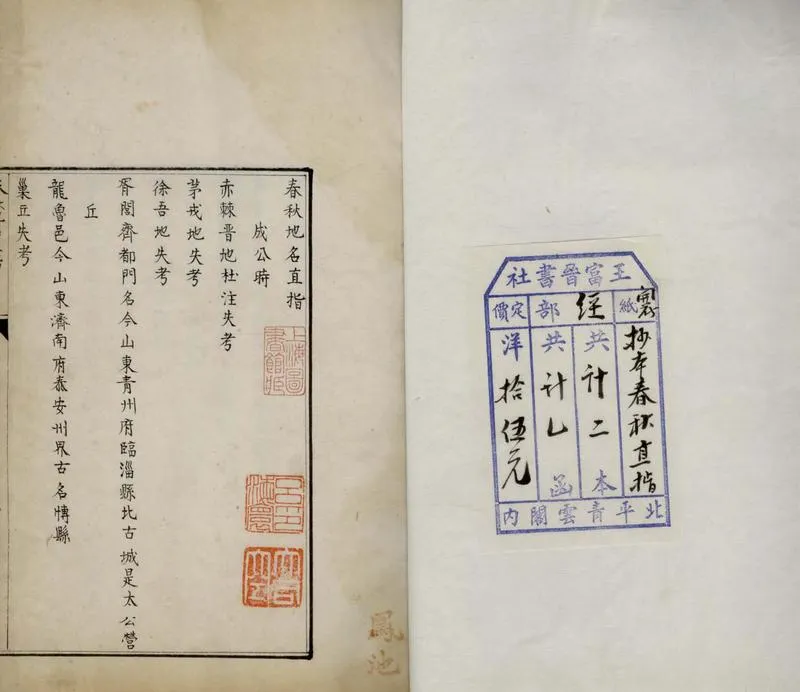 王富晉書社
紙
抄本春秋直指
經部
共計二本
共計乚函
定價
洋拾伍元
北平青雲閣內
春秋地名直指
成公時
赤棘晉地杜注失考
茅戎地失考
徐吾地失考
胥閭齊都門名今山東青州府臨淄縣北古城是太公營
丘
龍魯邑今山東濟南府泰安州界古名博縣
巢丘失考
上海圖書館藏
鳳池